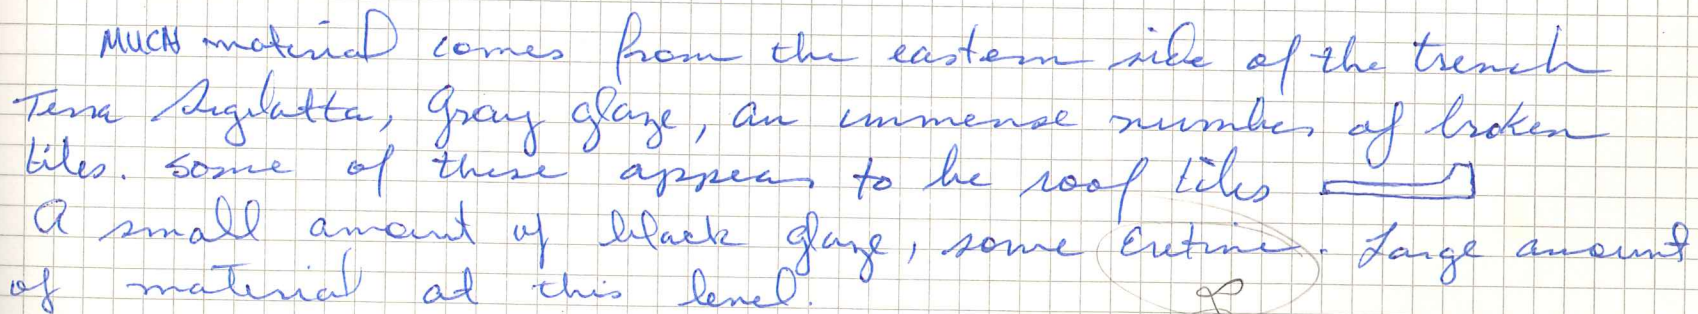 MUCH material comes from the eastern side of the trench
Terra Sigilatta, Gray glaze, an immense number of broken
tiles. Some of these appear to be roof tiles
A small amount of black glaze, some . Large amount
of material at this level.